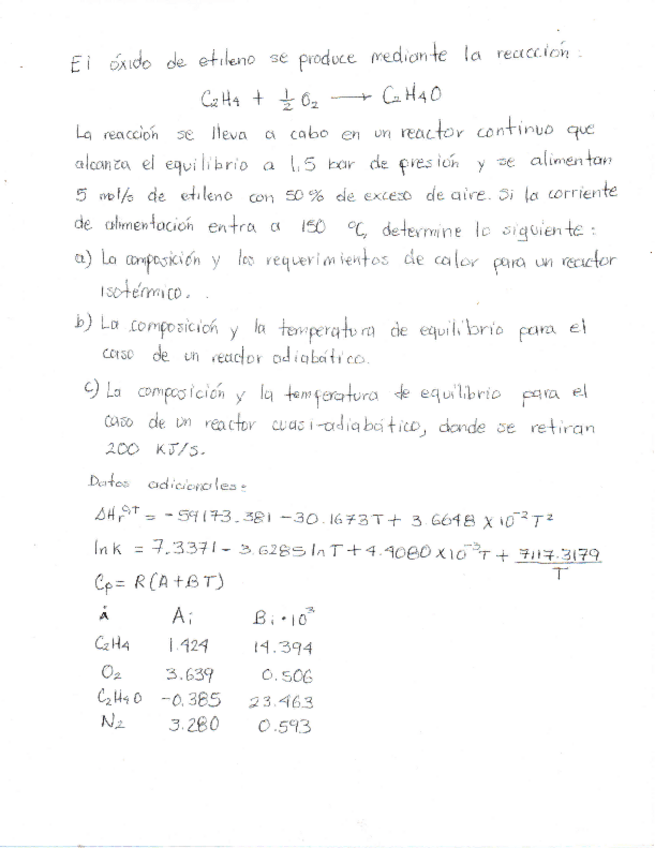 El óxido de etileno se produce mediante la reacción:
C2H4 + 1/2 O2 → C2H4O
La reacción se lleva a cabo en un reactor continuo que
alcanza el equilibrio a 1,5 bar de presión y se alimentan
5 mol/s de etileno con 50% de exceso de aire. Si la corriente
de alimentación entra a 150 °C, determine lo siguiente:
a) La composición y los requerimientos de calor para un reactor
isotérmico.
b) La composición y la temperatura de equilibrio para el
caso de un reactor adiabático.
c) La composición y la temperatura de equilibrio para el
caso de un reactor cuasi-adiabático, donde se retiran
200 KJ/s.
Datos adicionales:
ΔHr°T = -59173.381 - 30.1673T + 3.6648 x 10^-2 T^2
ln K = 7.3371 - 3.6285 ln T + 4.4080 x 10^-3 T + 7117.3179/T
Cp = R(A + BT)
i Ai Bi·10^3
C2H4 1.424 14.394
O2 3.639 0.506
C2H4O -0.385 23.463
N2 3.280 0.593